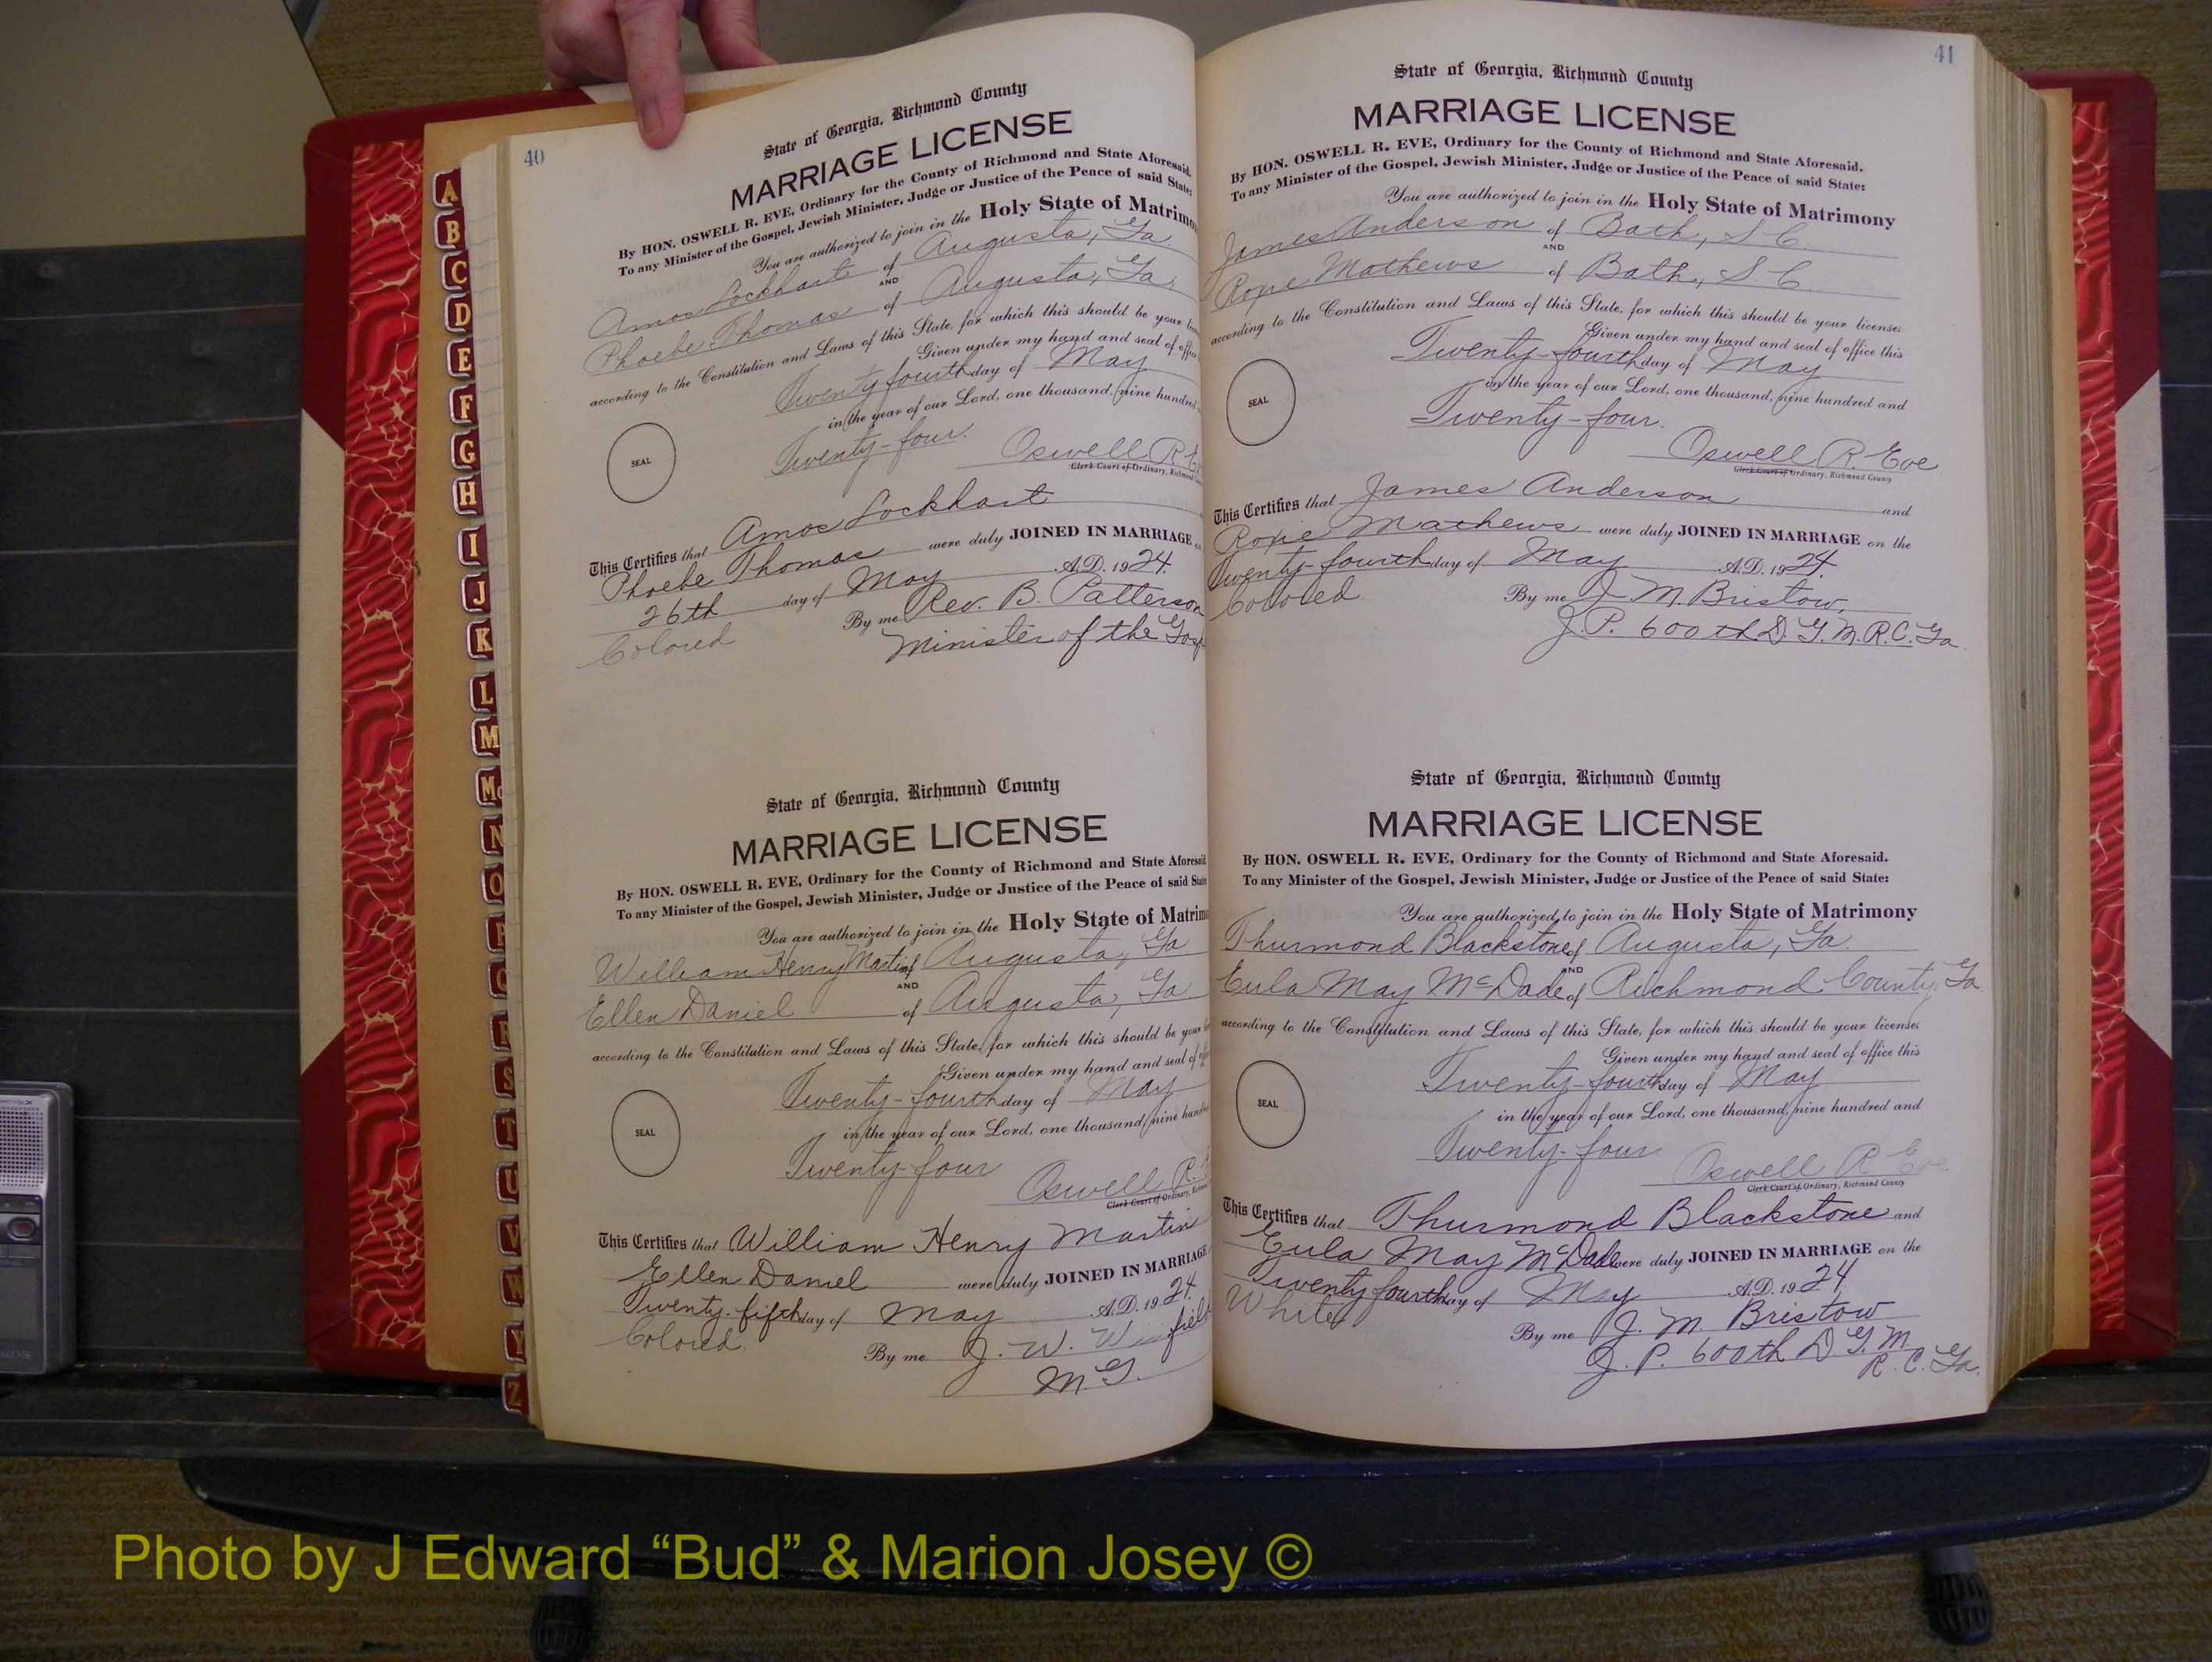 40
State of Georgia, Richmond County
MARRIAGE LICENSE
By HON. OSWELL R. EVE, Ordinary for the County of Richmond and State Aforesaid.
To any Minister of the Gospel, Jewish Minister, Judge or Justice of the Peace of said State:
You are authorized to join in the Holy State of Matrimo
Amos Lockhart of Augusta, Ga.
AND
Phoebe Thomas of Augusta, Ga.
according to the Constitution and Laws of this State, for which this should be your
Given under my hand and seal of offic
Twenty fourth day of May
in the year of our Lord, one thousand, nine hundred
Twenty-four.
SEAL
Oswell R. E
Clerk Court of Ordinary, Richmond
This Certifies that Amos Lockhart
Phoebe Thomas were duly JOINED IN MARRIAGE
26th day of May A.D. 1924.
Colored By me Rev. B. Patterson
Minister of the Gosp
State of Georgia, Richmond County
MARRIAGE LICENSE
By HON. OSWELL R. EVE, Ordinary for the County of Richmond and State Aforesaid
To any Minister of the Gospel, Jewish Minister, Judge or Justice of the Peace of said State
You are authorized to join in the Holy State of Matrim
William Henry Martin of Augusta, Ga
AND
Ellen Daniel of Augusta, Ga
according to the Constitution and Laws of this State, for which this should be your
Given under my hand and seal of
Twenty-fourth day of May
in the year of our Lord, one thousand, nine hundre
Twenty-four
SEAL
Oswell R.
Clerk Court of Ordinary,
This Certifies that William Henry Martin
Ellen Daniel were duly JOINED IN MARRIAGE
Twenty-fifth day of May A.D. 1924.
Colored. By me J. W.
M.G.
41
State of Georgia, Richmond County
MARRIAGE LICENSE
By HON. OSWELL R. EVE, Ordinary for the County of Richmond and State Aforesaid.
To any Minister of the Gospel, Jewish Minister, Judge or Justice of the Peace of said State:
You are authorized to join in the Holy State of Matrimony
James Anderson of Bath, S.C.
AND
Mathews of Bath, S.C.
according to the Constitution and Laws of this State, for which this should be your license:
Given under my hand and seal of office this
Twenty-fourth day of May
in the year of our Lord, one thousand, nine hundred and
Twenty-four.
SEAL
Oswell R. Eve
Clerk Court of Ordinary, Richmond County
This Certifies that James Anderson and
Mathews were duly JOINED IN MARRIAGE on the
Twenty-fourth day of May A.D. 1924.
Colored By me J. M. Bristow,
J.P. 600th D. G.M.R.C. Ga.
State of Georgia, Richmond County
MARRIAGE LICENSE
By HON. OSWELL R. EVE, Ordinary for the County of Richmond and State Aforesaid.
To any Minister of the Gospel, Jewish Minister, Judge or Justice of the Peace of said State:
You are authorized to join in the Holy State of Matrimony
Thurmond Blackstone of Augusta, Ga.
AND
Eula May McDade of Richmond County, Ga
according to the Constitution and Laws of this State, for which this should be your license:
Given under my hand and seal of office this
Twenty-fourth day of May
in the year of our Lord, one thousand, nine hundred and
Twenty-four
SEAL
Oswell R Eve
Clerk Court of Ordinary, Richmond County
This Certifies that Thurmond Blackstone and
Eula May McDade were duly JOINED IN MARRIAGE on the
Twenty fourth day of May A.D. 1924.
White By me J. M. Bristow
J. P. 600th D G. M.
R. C. Ga.
A
B
C
D
E
F
G
H
I
J
K
L
M
Mc
N
O
P
Q
R
S
T
U
V
W
Y
Z
Photo by J Edward “Bud” & Marion Josey ©